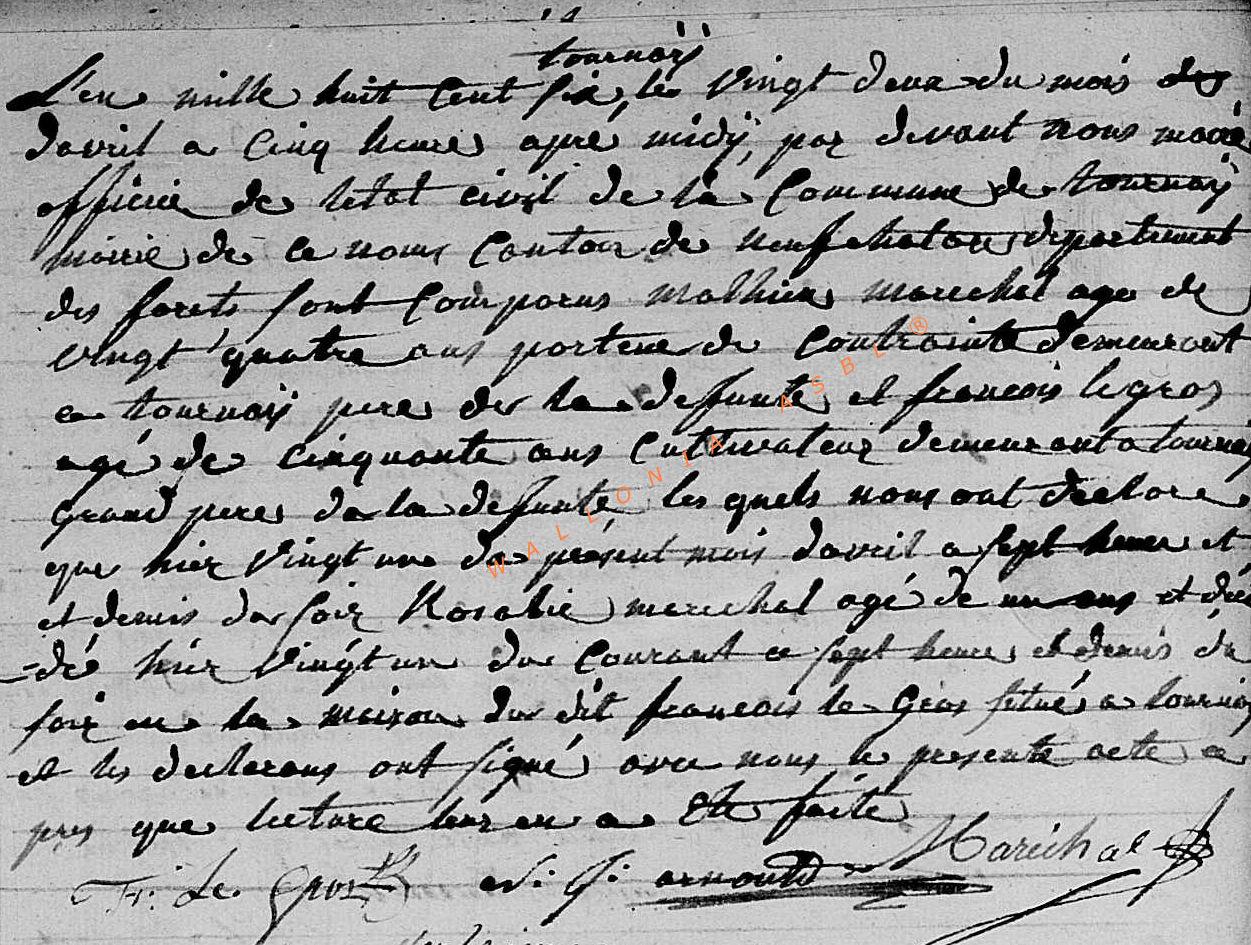 tournaÿ
L'en mille huit Cent six, le Vingt deux du mois des
davril a Cinq heure apre midÿ, par devant nous maire
officié de letat civil de la Commune de tournaÿ
mairie de ce nom Canton de neufchateau departement
des forets sont Comparus mathieu marechal age de
vingt quatre ans porteur de Contrainte demeurant
a tournaÿ pere de la defunte et francois legros
agé de Cinquante ans Cultivateur demeurant a tournaÿ
grand pere de la defunte les quels nous ont declare
que hier Vingt un du présent mois davril a sept heure et
et demis du soir Rosalie marechal agé de un ans et décé
=dé hier Vingt un du Courant a sept heure et demis du
soir en la maison du dit francois le Gros situé a tournaÿ
et les declarans ont signé avec nous le presente acte a
pres que lecture leur en a Eté faite
Fr: Le Gros J: arnould Maréchal